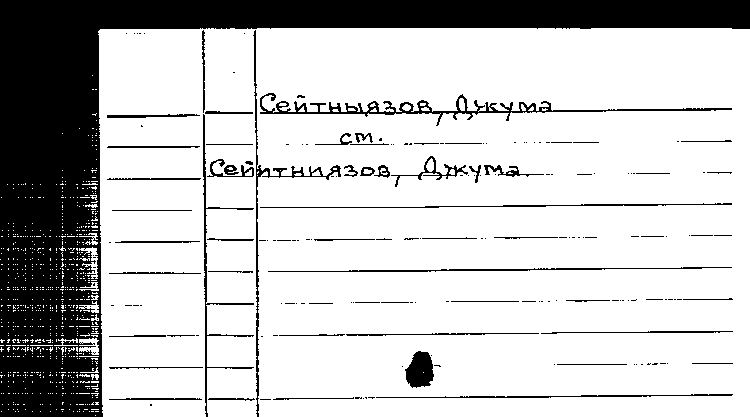 Сейтныязов, Джума
см.
Сейитниязов, Джума.